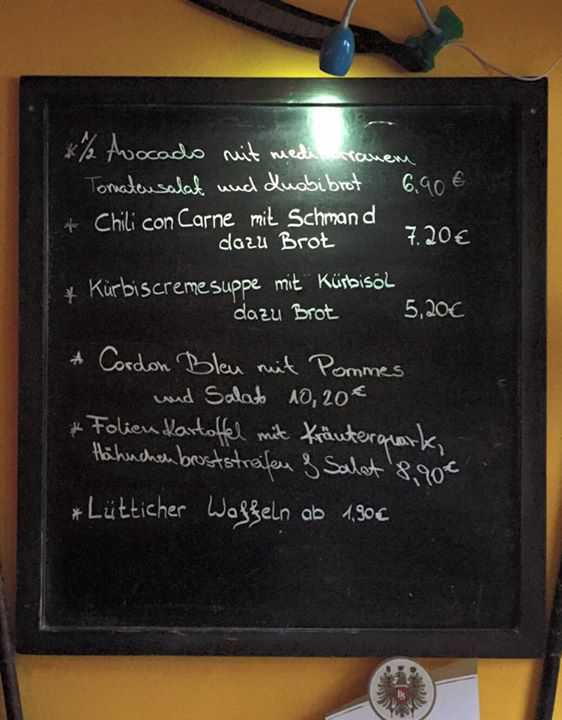 * 1/2 Avocado mit mediterranem
Tomatensalat und Knobibrot 6,90 €
* Chili con Carne mit Schmand
dazu Brot 7.20 €
* Kürbiscremesuppe mit Kürbisöl
dazu Brot 5,20€
* Cordon Bleu mit Pommes
und Salat 10,20 €
* Folienkartoffel mit Kräuterquark,
Hähnchenbruststreifen & Salat 8,90 €
* Lütticher Waffeln ab 1,90 €